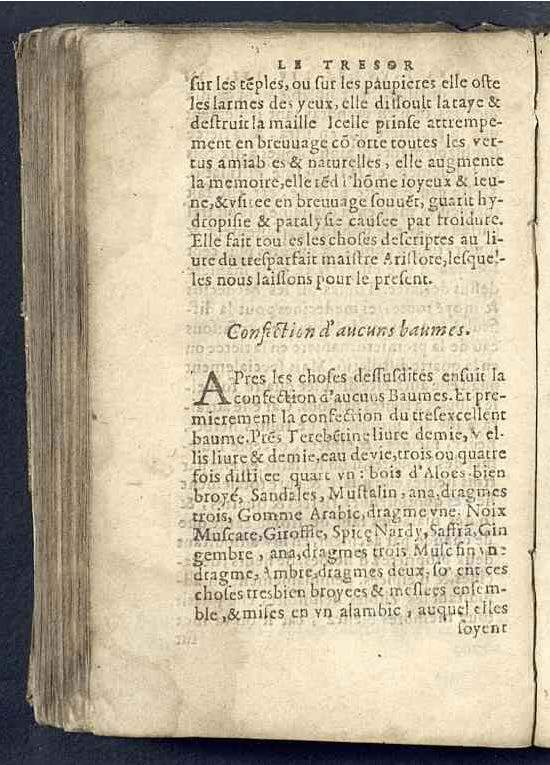 LE TRESOR
sur les tẽples, ou sur les paupieres elle oste
les larmes des yeux, elle dissoult la taye &
destruit la maille Icelle prinse attrempe-
ment en breuuage cõforte toutes les ver-
tus amiables & naturelles, elle augmente
la memoire, elle rẽd l'hõme ioyeux & ieu-
ne, & vsitee en breuuage souuẽt, guarit hy-
dropisie & paralysie causee par froidure.
Elle fait toutes les choses descriptes au li-
ure du tresparfait maistre Aristote, lesquel-
les nous laissons pour le present.
Confection d'aucuns baumes.
APres les choses dessusdites ensuit la
confection d'aucuns Baumes. Et pre-
mierement la confection du tresexcellent
baume. Prẽs Terebẽtine liure demie, vel-
lis liure & demie, eau de vie, trois ou quatre
fois distilee quart vn : bois d'Aloes bien
broyé, Sandales, Mustalin, ana, dragmes
trois, Gomme Arabic, dragme vne. Noix
Muscate, Giroffle, Spicę Nardy, Saffrã, Gin
gembre, ana, dragmes trois Musc fin vne
dragme, Ambre, dragmes deux, soyent ces
choses tresbien broyees & meslees ensem-
ble, & mises en vn alambic, auquel elles
soyent